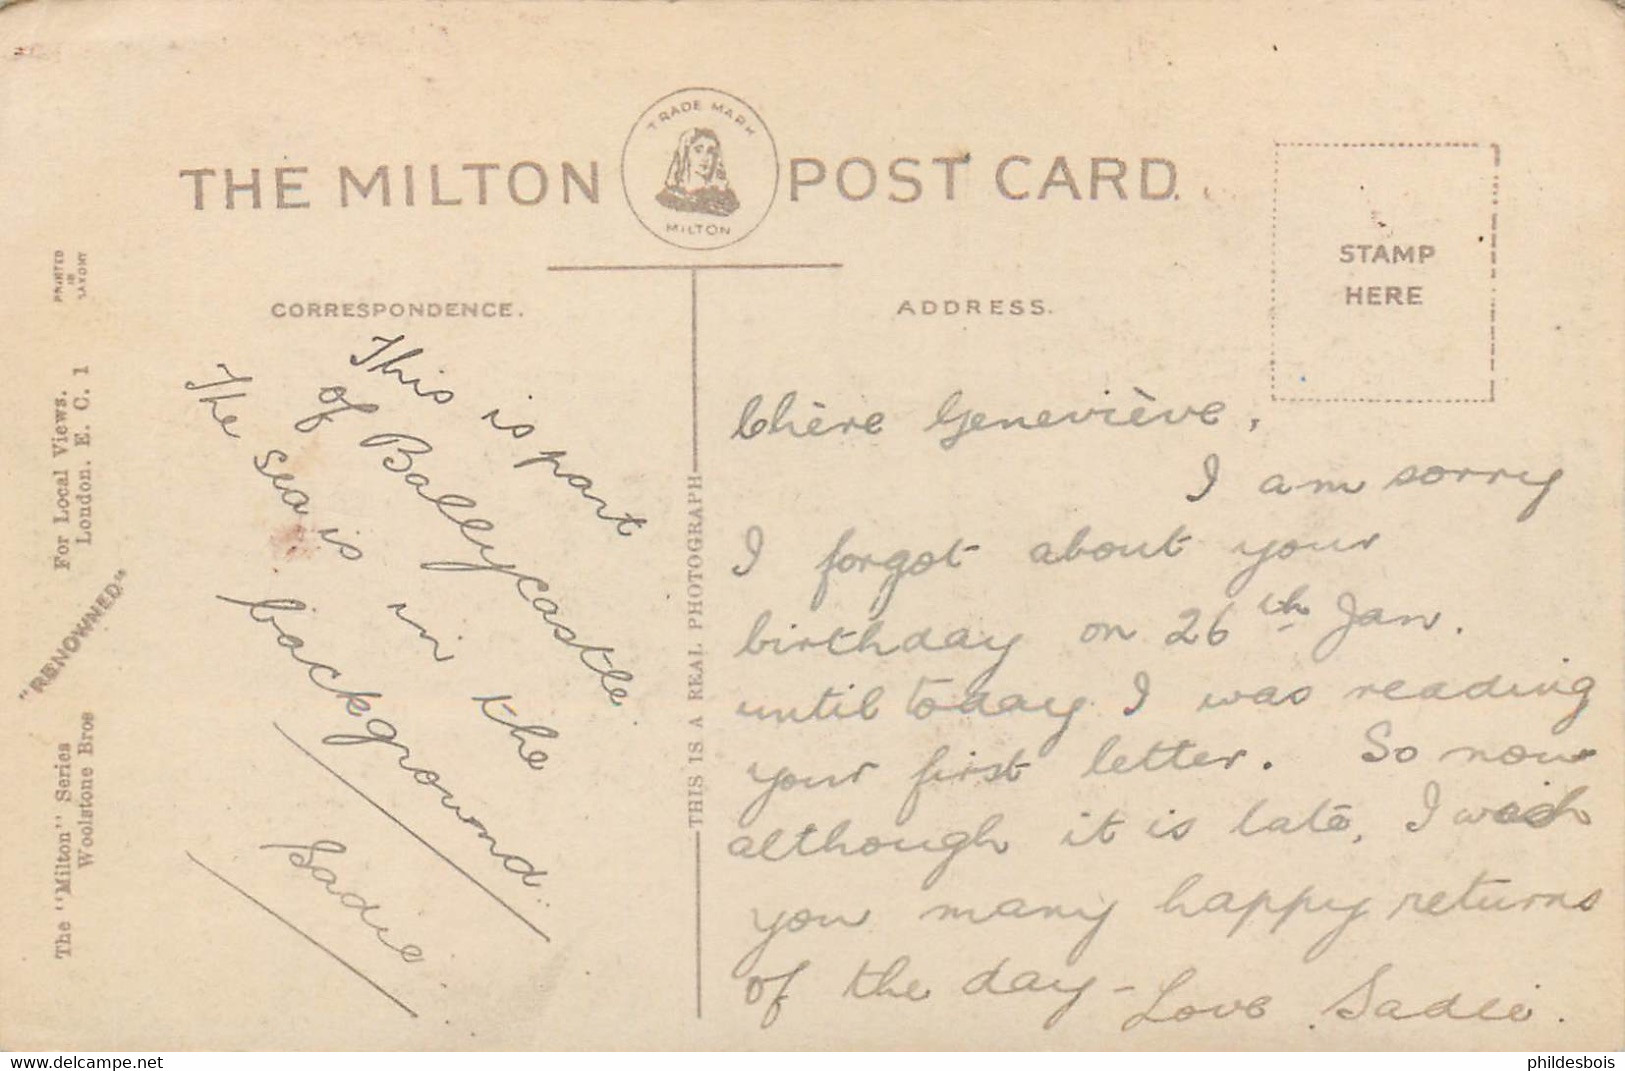 THE MILTON POST CARD.
TRADE MARK
MILTON
STAMP
HERE
CORRESPONDENCE.
ADDRESS.
This is part
of Ballycastle.
The sea is in the
background.
Sadie
Chère Geneviève,
I am sorry
I forgot about your
birthday on 26th Jan.
until today I was reading
your first letter. So now
although it is late, I wish
you many happy returns
of the day - Love Sadie.
THIS IS A REAL PHOTOGRAPH
PRINTED
IN
SAXONY
For Local Views.
London. E. C. 1
"RENOWNED"
The "Milton" Series
Woolstone Bros
delcampe.net
phildesbois